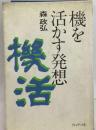 機を
活かす発想
森 政弘
機
活